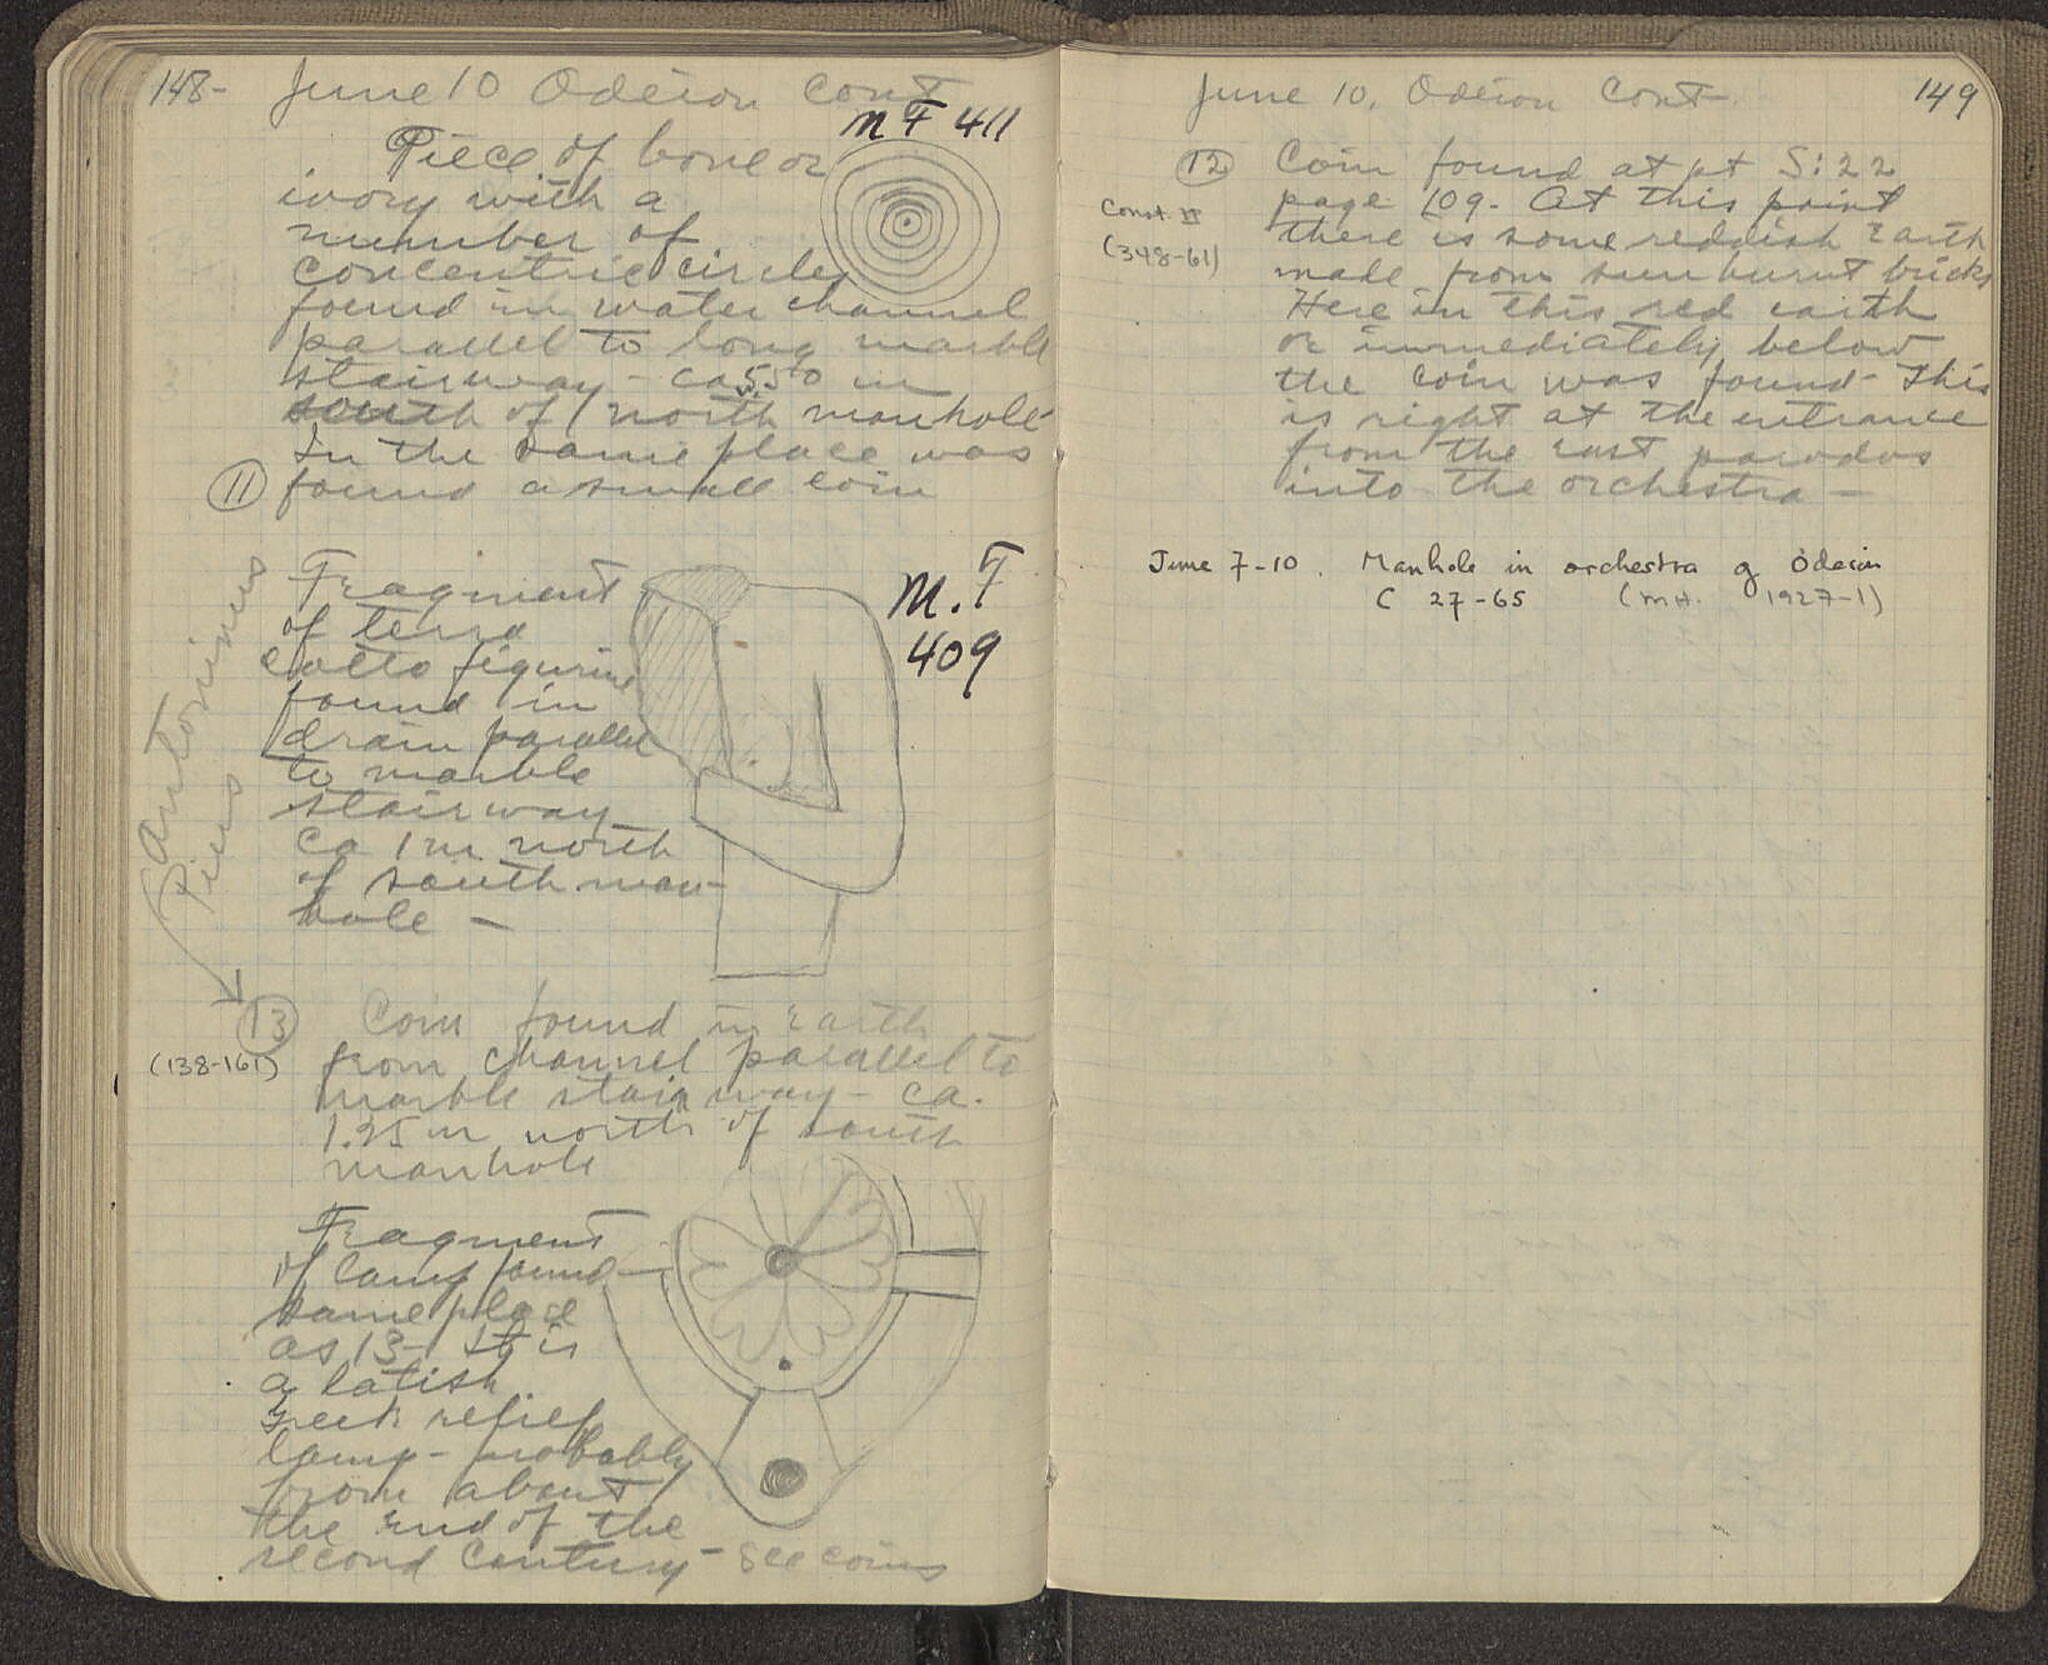 148- June 10 Odeion Cont
MF 411
Piece of bone or
ivory with a
number of
concentric circles
found in water channel
parallel to long marble
stairway - ca 5.50 m
south of north manhole
In the same place was
11 found a small coin
Fragment
of terra
cotta figurine
found in
drain parallel
to marble
stairway
ca 1 m north
of south man-
hole -
M.F
409
Antoninus
Pius
13 Coin found in earth
(138-161) from channel parallel to
marble stairway - ca.
1.25 m north of south
manhole
Fragment
of lamp found
same place
as 13 - It is
a latish
Greek relief
lamp - probably
from about
the end of the
second century - See coins
June 10. Odeion Cont- 149
12 Coin found at pt S:22
Const. II page 109. At this point
(348-61) there is some reddish earth
made from sun burnt bricks
Here in this red earth
or immediately below
the coin was found - This
is right at the entrance
from the east parodos
into the orchestra -
June 7-10. Manhole in orchestra of Odeion
C 27-65 (MH. 1927-1)